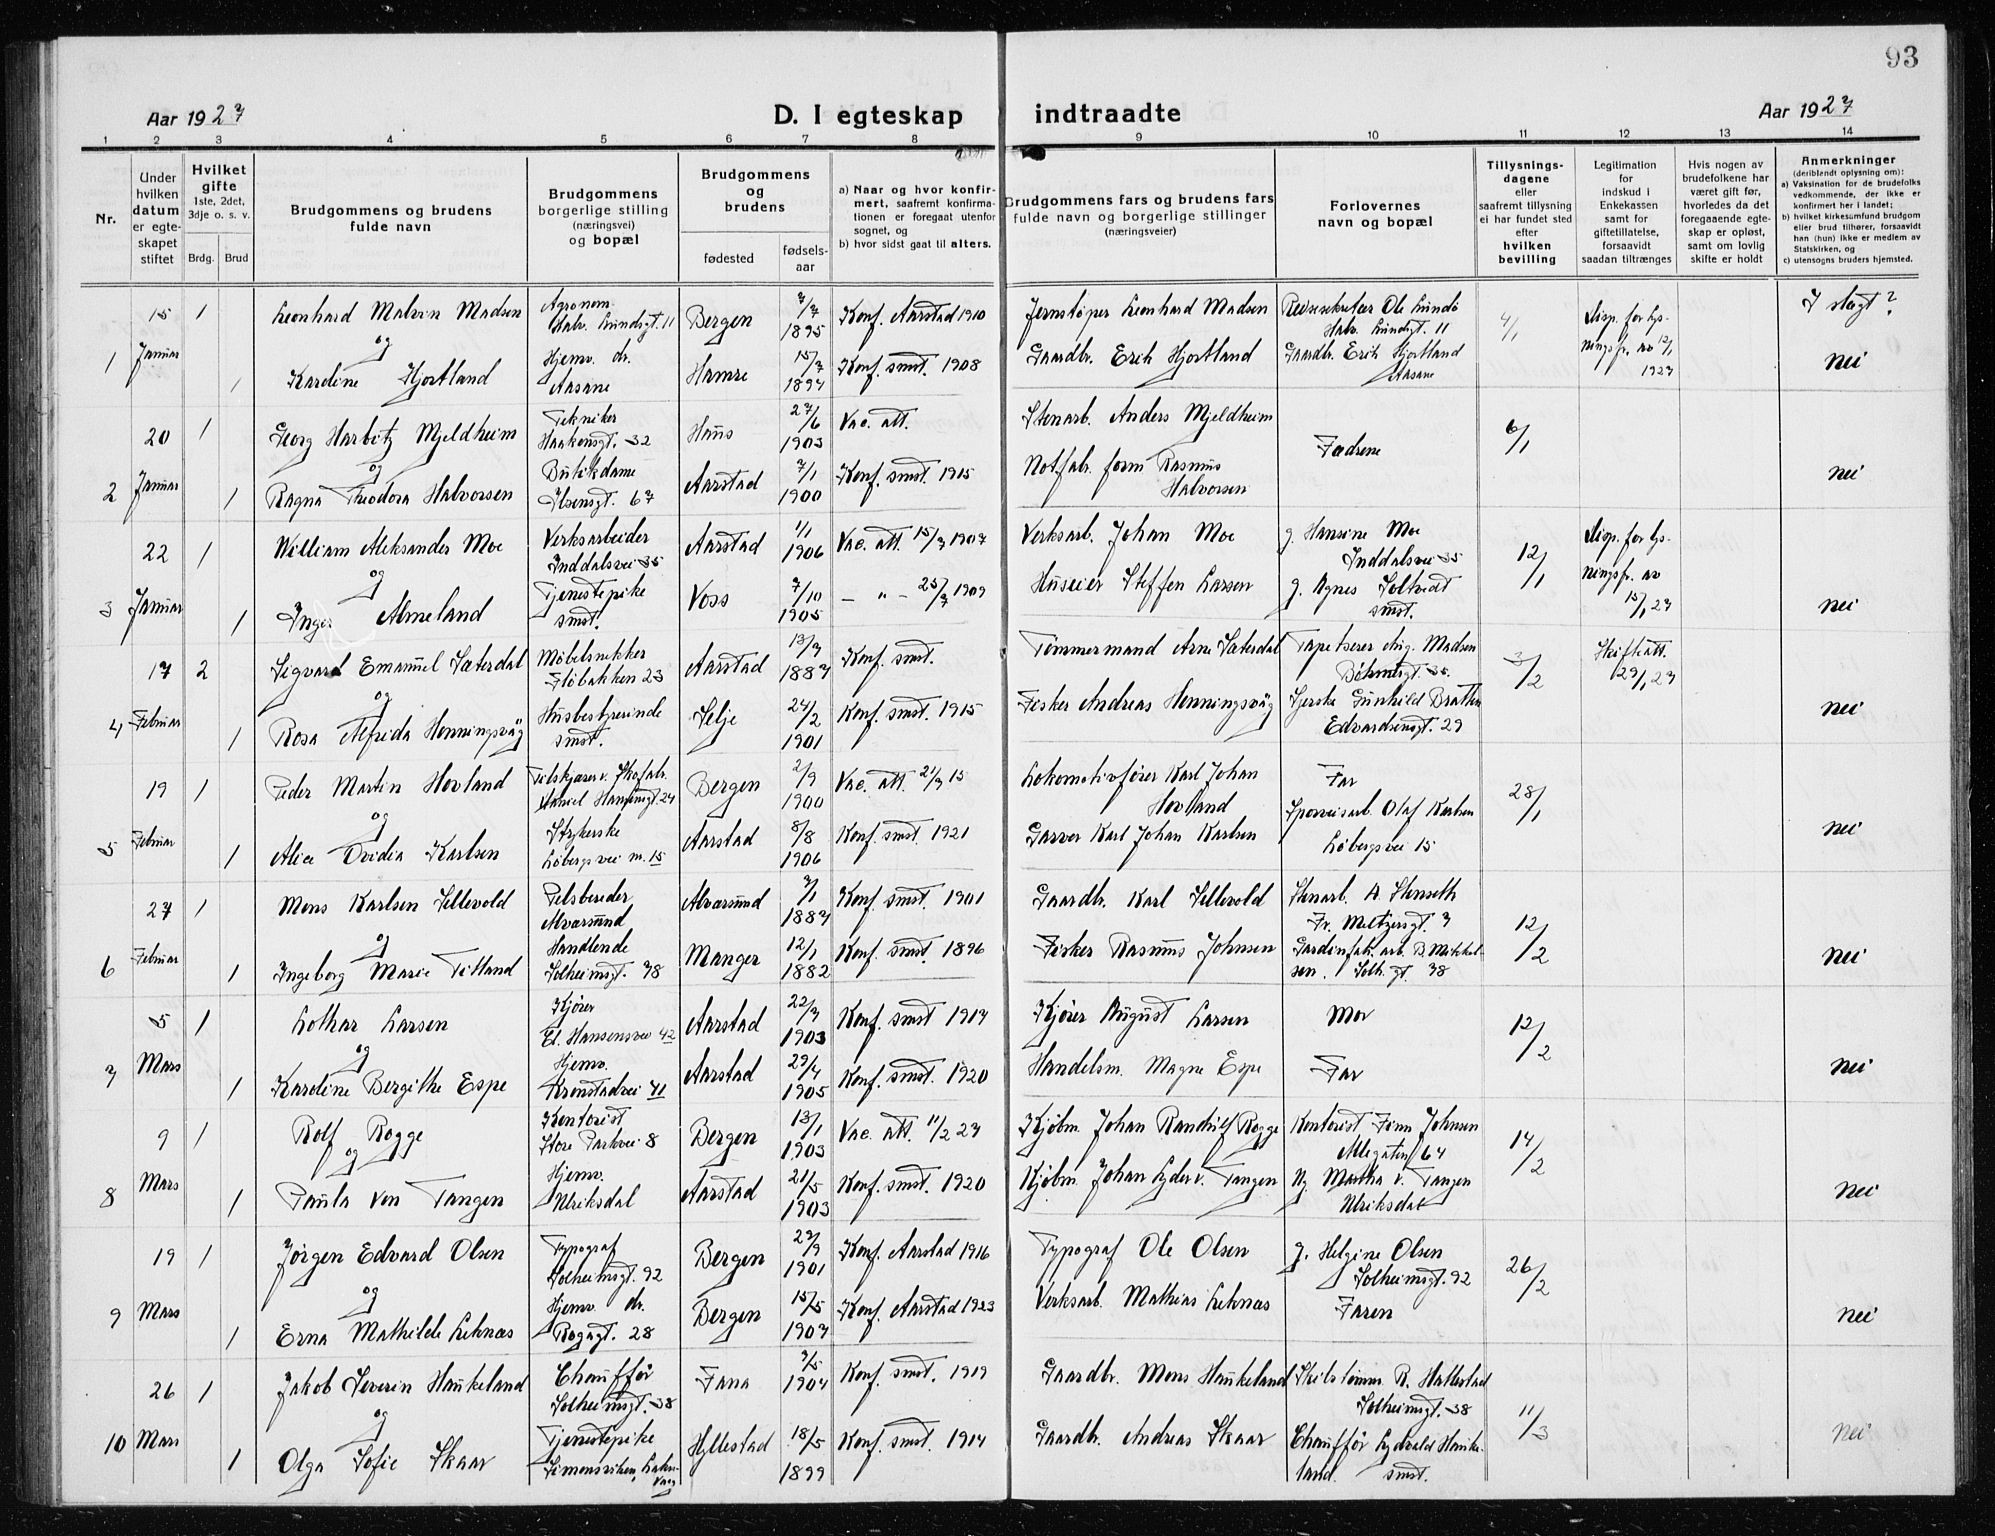 93
Aar 1927
D. I egteskap indtraadte
Aar 1927
1 2 3 4 5 6 7 8 9 10 11 12 13 14
Nr.
Under hvilken datum er egteskapet stiftet
Hvilket gifte 1ste, 2det, 3dje o. s. v.
Brdg. Brud
Brudgommens og brudens fulde navn
Brudgommens borgerlige stilling (næringsvei) og bopæl
Brudgommens og brudens
fødested fødsels-aar
a) Naar og hvor konfirmert, saafremt konfirmationen er foregaat utenfor sognet, og
b) hvor sidst gaat til alters.
Brudgommens fars og brudens fars fulde navn og borgerlige stillinger (næringsveier)
Forlovernes navn og bopæl
Tillysningsdagene eller saafremt tillysning ei har fundet sted efter hvilken bevilling
Legitimation for indskud i Enkekassen samt for giftetillatelse, forsaavidt saadan tiltrænges
Hvis nogen av brudefolkene har været gift før, hvorledes da det foregaaende egteskap er opløst, samt om lovlig skifte er holdt
Anmerkninger (deriblandt oplysning om):
a) Vaksination for de brudefolks vedkommende, der ikke er konfirmert her i landet;
b) hvilket kirkesumfund brudgom eller brud tilhører, forsaavidt han (hun) ikke er medlem av Statskirken, og
c) utensogns bruders hjemsted.
1 15 Januar 1 Leonhard Malvin Madsen Agronom Halv. Lundsgt. 11 Bergen 7/7 1895 Konf. Aarstad 1910 Jernstøper Leonhard Madsen Reisesekretær Ole Lundø Halv. Lundsgt. 11 4/1 Disp. for lysningsfr. av 12/1 1927 I slegt?
og
1 Karoline Hjortland Hjemv. dr. Aasane Hamre 15/7 1894 Konf. smst. 1908 Gaardbr. Erik Hjortland Gaardbr. Erik Hjortland Aasane nei
2 20 Januar 1 Georg Harbitz Mjeldheim Tekniker Haakensgt. 32 Haus 27/6 1903 Vac. att. Stenarb. Anders Mjeldheim Fædrene 6/1
og
1 Ragna Theodora Halvorsen Butikdame Ibsensgt. 67 Aarstad 7/1 1900 Konf. smst. 1915 Notfabr. form Rasmus Halvorsen nei
3 22 Januar 1 William Aleksander Moe Verksarbeider Inddalsvei 35 Aarstad 1/1 1906 Vac. att. 15/7 1907 Verksarb. Johan Moe g. Hansine Moe Inddalsvei 35 12/1 Disp. for lysningsfr. av 15/1 27
og
1 Inger Almeland Tjenestepike smst. Voss 7/10 1905 – " – 25/7 1909 Huseier Steffen Larsen g. Agnes Soltvedt smst. nei
4 17 Februar 2 Sigvard Emanuel Sæterdal Møbelsnekker Fløbakken 23 Aarstad 13/7 1887 Konf. smst. Tømmermand Arne Sæterdal Tapetserer Aug. Madsen Bøhmergt. 35. 3/2 Skifteatt. 29/1 27
og
1 Rosa Alfrida Henningsvåg Husbestyrerinde smst. Selje 24/2 1901 Konf. smst. 1915 Fisker Andreas Henningsvåg Syerske Gunhild Bratten Edvardsensgt. 29 nei
5 19 Februar 1 Peder Martin Hovland Tilskjærer v. Skofabr. Daniel Hansensgt. 24 Bergen 2/9 1900 Vac. att. 21/9 15 Lokomotivfører Karl Johan Hovland Far 28/1
og
1 Alice Ovidia Karlsen Strykerske Løbergsvei nr. 15 Aarstad 8/8 1906 Konf. smst. 1921 Garver Karl Johan Karlsen Sporveisarb. Olaf Karlsen Løbergsvei 15 nei
6 27 Februar 1 Mons Karlsen Sellevold Pelsbereder Alversund Alversund 7/1 1887 Konf. smst. 1901 Gaardbr. Karl Sellevold Stenarb. A. Stenseth Fr. Meltzersgt. 7 12/2
og
1 Ingeborg Marie Titland Handlende Solheimsgt. 78 Manger 12/1 1882 Konf. smst. 1896 Fisker Rasmus Johnsen Gardinfabr. arb. B. Mikkelsen. Solh. gt. 78 nei
7 5 Mars 1 Lothar Larsen Kjører Ed. Hansensvei 42 Aarstad 22/7 1903 Konf. smst 1917 Kjører August Larsen Mor 12/2
og
1 Karoline Bergithe Espe Hjemv. Kronstadvei 41 Aarstad 29/4 1905 Konf. smst. 1920 Handelsm. Magne Espe Far nei
8 9 Mars 1 Rolf Rogge Kontorist Store Parkvei 8 Bergen 13/1 1903 Vac. att. 11/2 27 Kjøbm. Johan Randulf Rogge Kontorist Finn Johnsen Allegaten 64 14/2
og
1 Paula von Tangen Hjemv. Ulriksdal Aarstad 21/5 1903 Konf. smst. 1920 Kjøbm. Johan Lyder v. Tangen Martha v. Tangen Ulriksdal nei
9 19 Mars 1 Jørgen Edvard Olsen Typograf Solheimsgt. 92 Bergen 27/9 1901 Konf. Aarstad 1916 Typograf Ole Olsen g. Helgine Olsen Solheimsgt. 92 26/2
og
1 Erna Mathilde Leknæs Hjemv. dr. Rogagt. 28 Bergen 15/5 1907 Konf. Aarstad 1923 Verksarb. Mathias Leknæs Faren nei
10 26 Mars 1 Jakob Severin Haukeland Chauffør Solheimsgt. 38 Fana 7/5 1904 Konf. smst. 1919 Gaardbr. Mons Haukeland Skibstømm. R. Hattestad Solheimsgt. 38 11/3
og
1 Olga Sofie Skaar Tjenestepike Simonsviken, Laksevaag Hyllestad 18/5 1899 Konf. smst. 1914 Gaardbr. Andreas Skaar Chauffør Haukeland. smst. nei